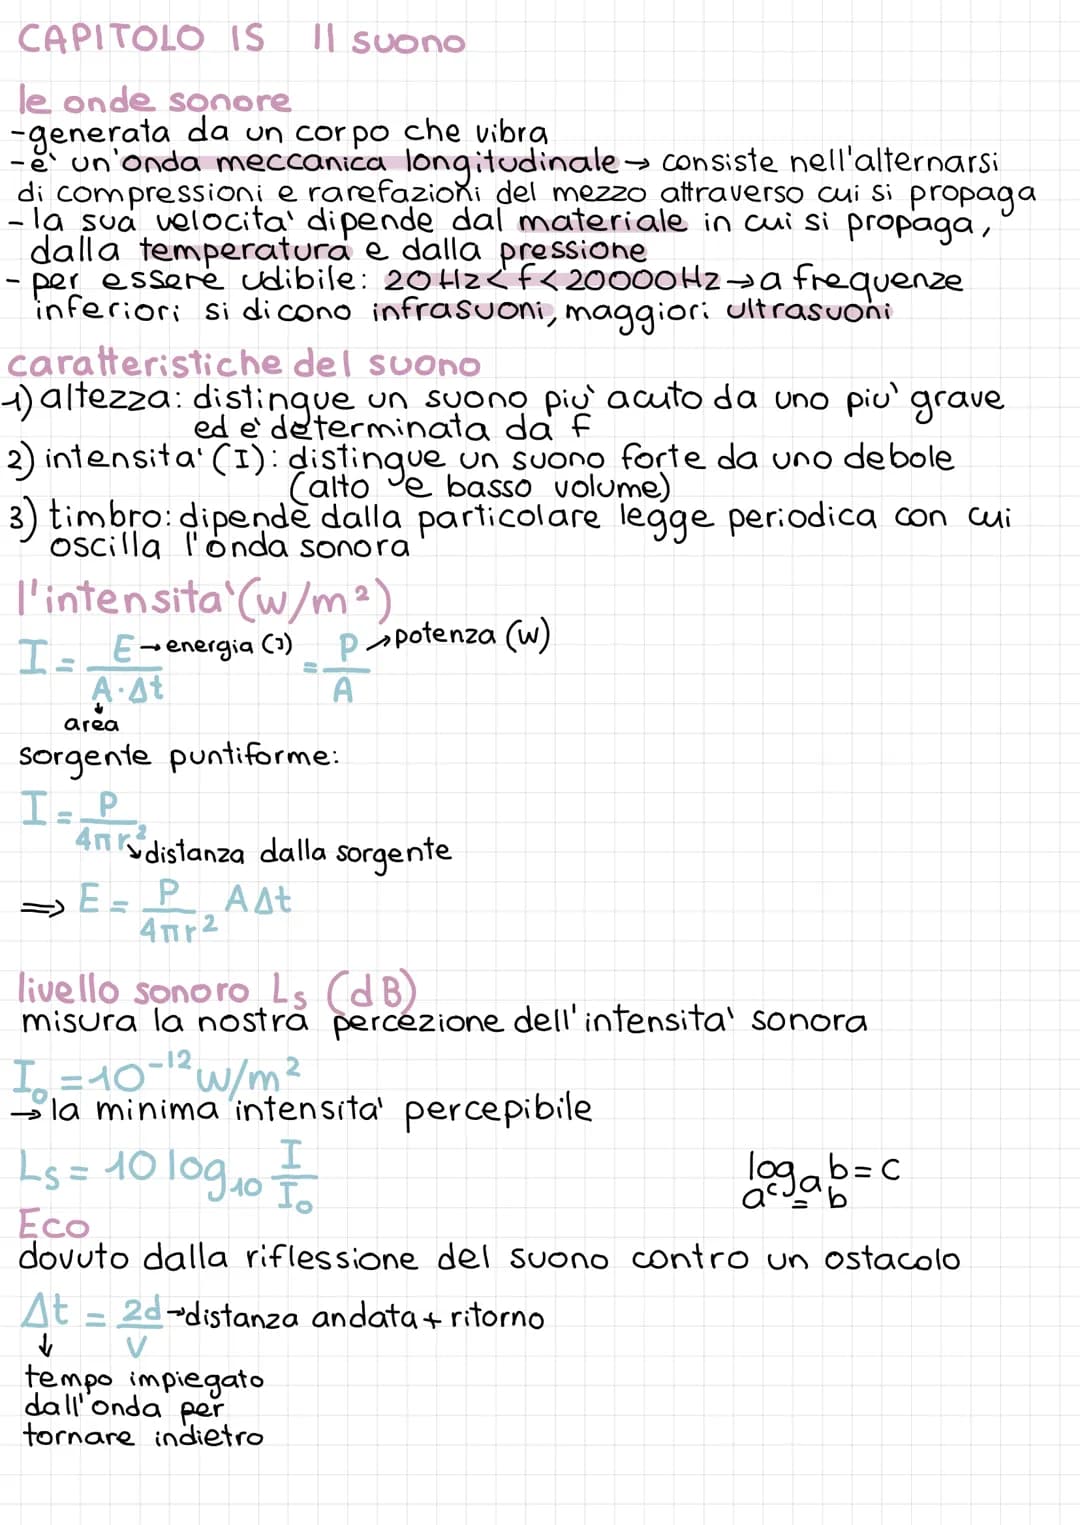 CAPITOLO 15 Il suono
le onde sonore
-generata da un corpo che vibra
-e' un'onda meccanica longitudinale → consiste nell'alternarsi
di compressioni e rarefazioni del mezzo attraverso cui si propaga
-la sua velocita' dipende dal materiale in cui si propaga,
dalla temperatura e dalla pressione
- per essere udibile: 20Hz<f<20000Hz→a frequenze
inferiori si dicono infrasuoni, maggiori ultrasuoni
caratteristiche del suono
1) altezza: distingue un suono piu' acuto da uno piu' grave
ed e' determinata da f
2) intensita' (I): distingue un suono forte da uno debole
(alto e basso volume)
3) timbro: dipende dalla particolare legge periodica con cui
oscilla l'onda sonora
l'intensita' (w/m²)
I = E→energia (J) / A·Δt = P→potenza (w) / A
area
sorgente puntiforme:
I = P / 4πr²
distanza dalla sorgente
⇒ E = P / 4πr² AΔt
livello sonoro Ls (dB)
misura la nostra percezione dell'intensita' sonora
I₀ = 10⁻¹² w/m²
→ la minima intensita' percepibile
Ls = 10 log₁₀ I / I₀
logₐb = c
aᶜ = b
Eco
dovuto dalla riflessione del suono contro un ostacolo
Δt = 2d→distanza andata + ritorno / v
tempo impiegato
dall'onda per
tornare indietro